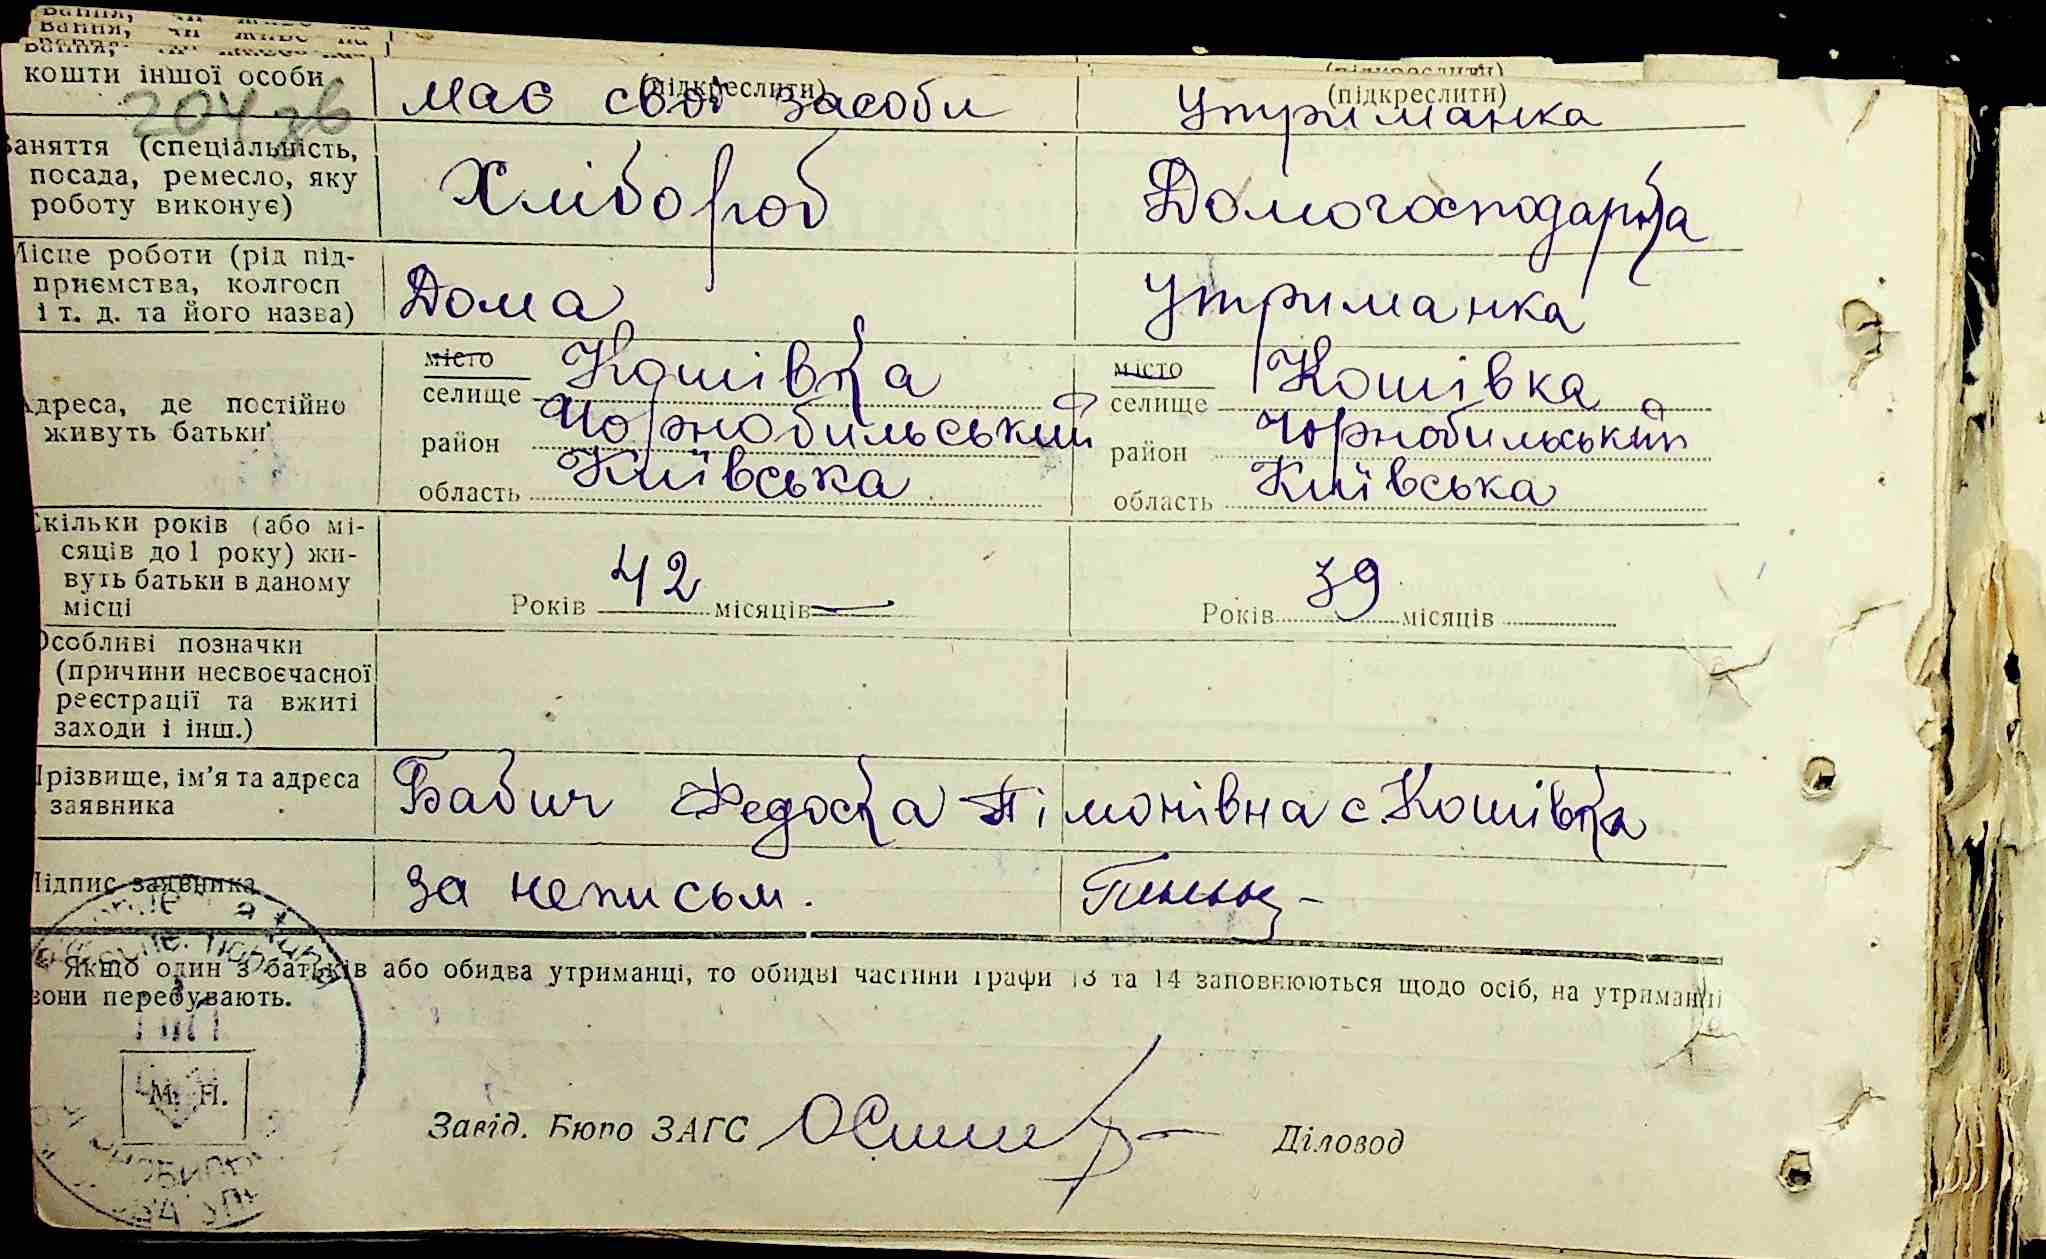 кошти іншої особи
(підкреслити)
(підкреслити)
має свої засоби
Утриманка
204 зв
Заняття (спеціальність,
посада, ремесло, яку
роботу виконує)
Хлібороб
Домогосподарка
Місце роботи (рід під-
приємства, колгосп
і т. д. та його назва)
Дома
Утриманка
Адреса, де постійно
живуть батьки
місто
селище
Кошівка
район
Чорнобильський
область
Київська
місто
селище
Кошівка
район
Чорнобильський
область
Київська
Скільки років (або мі-
сяців до 1 року) жи-
вуть батьки в даному
місці
Років 42 місяців —
Років 39 місяців
Особливі позначки
(причини несвоєчасної
реєстрації та вжиті
заходи і інш.)
Прізвище, ім'я та адреса
заявника
Бабич Федоска Тімонівна с. Кошівка
Підпис заявника
за неписьм.
Якщо один з батьків або обидва утриманці, то обидві частини графи 13 та 14 заповнюються щодо осіб, на утриманні
вони перебувають.
М. П.
Завід. Бюро ЗАГС
Діловод